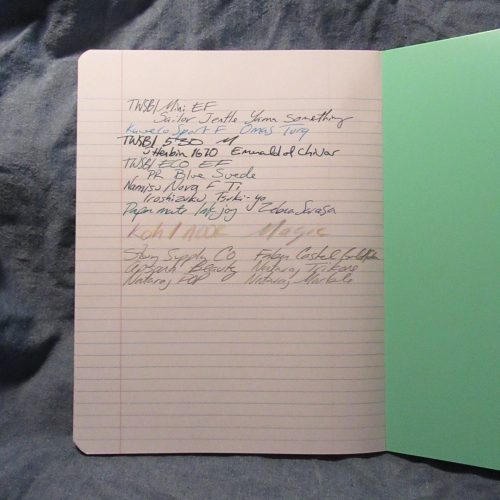 TWSBI Mini EF
Sailor Jentle Yama Something
Kaweco Sport F Omas Turq
TWSBI 530 M
J Herbin 1670 Emerald of Chivor
TWSBI ECO EF
PR Blue Suede
Namisu Nova F Ti
Iroshizuku Tsuki-yo
Papermate Inkjoy Zebra Sarasa
Koh I Noor Magic
Supply Co. Faber Castell
Apsara Beauty Nataraj Trikone
Nataraj POP Nataraj Marble